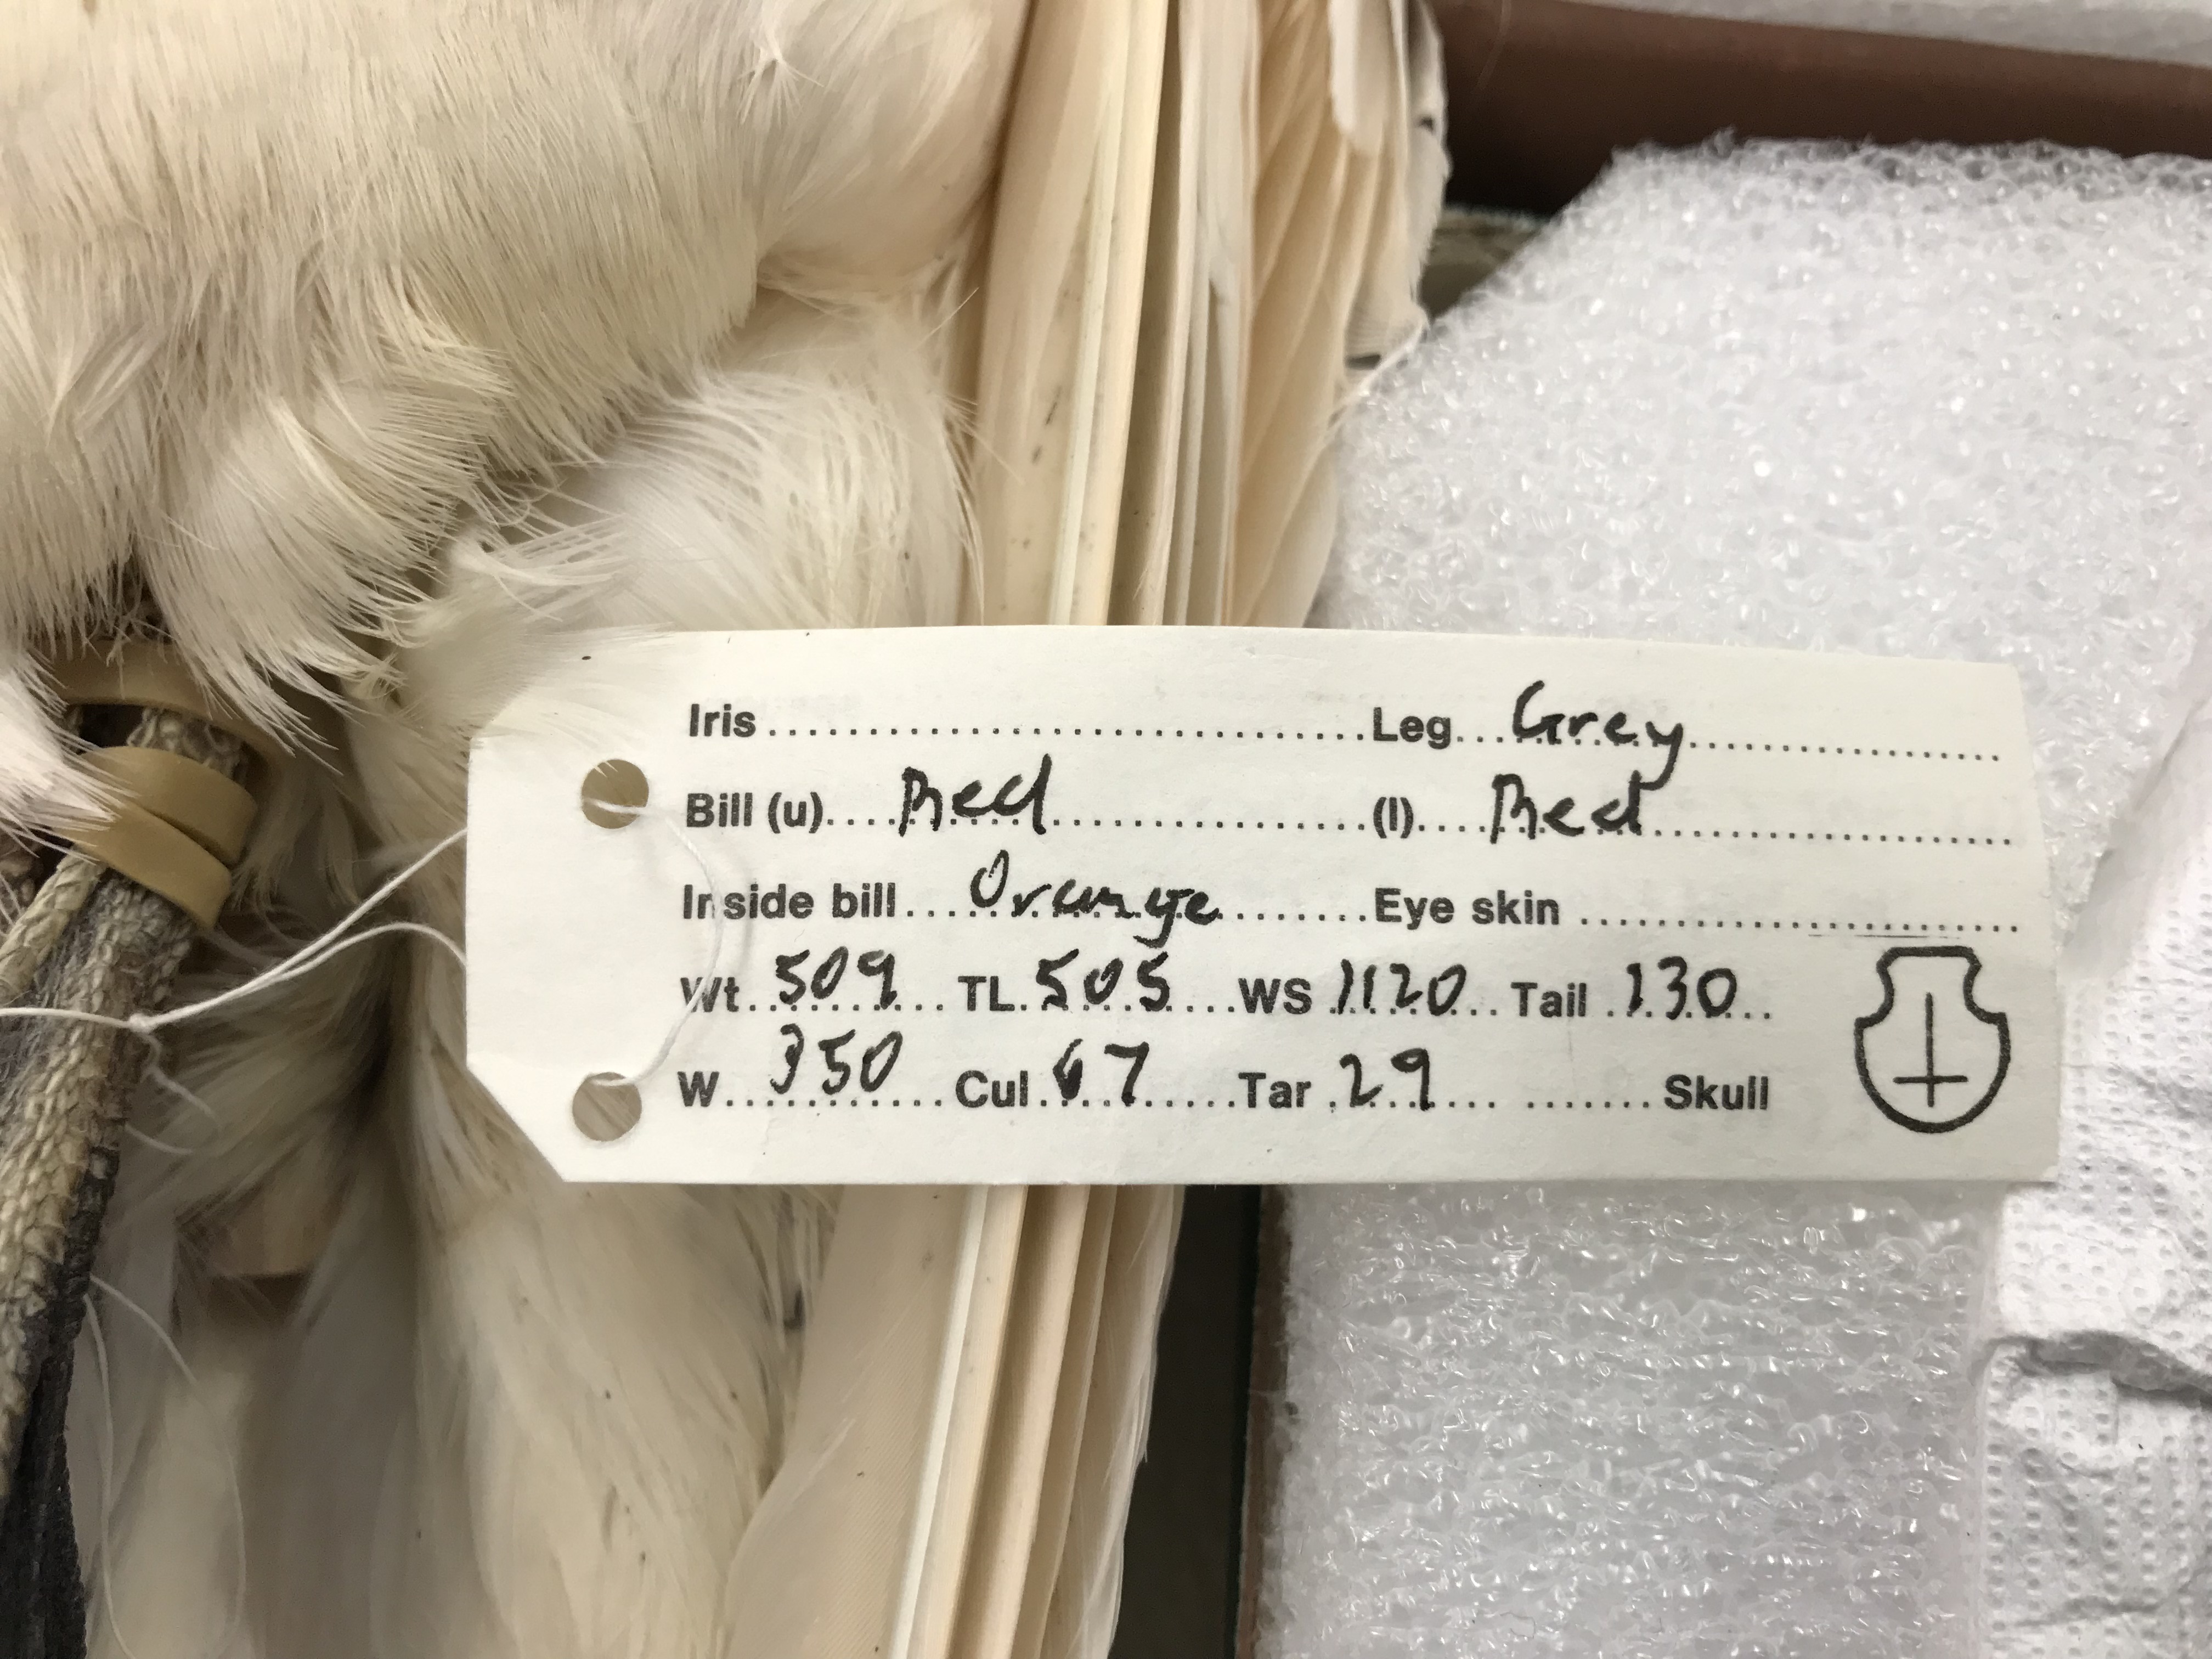 Iris Leg Grey
Bill (u) Red (l) Red
Inside bill Orange Eye skin
Wt 509 TL 505 WS 1120 Tail 130
W 350 Cul 67 Tar 29 Skull